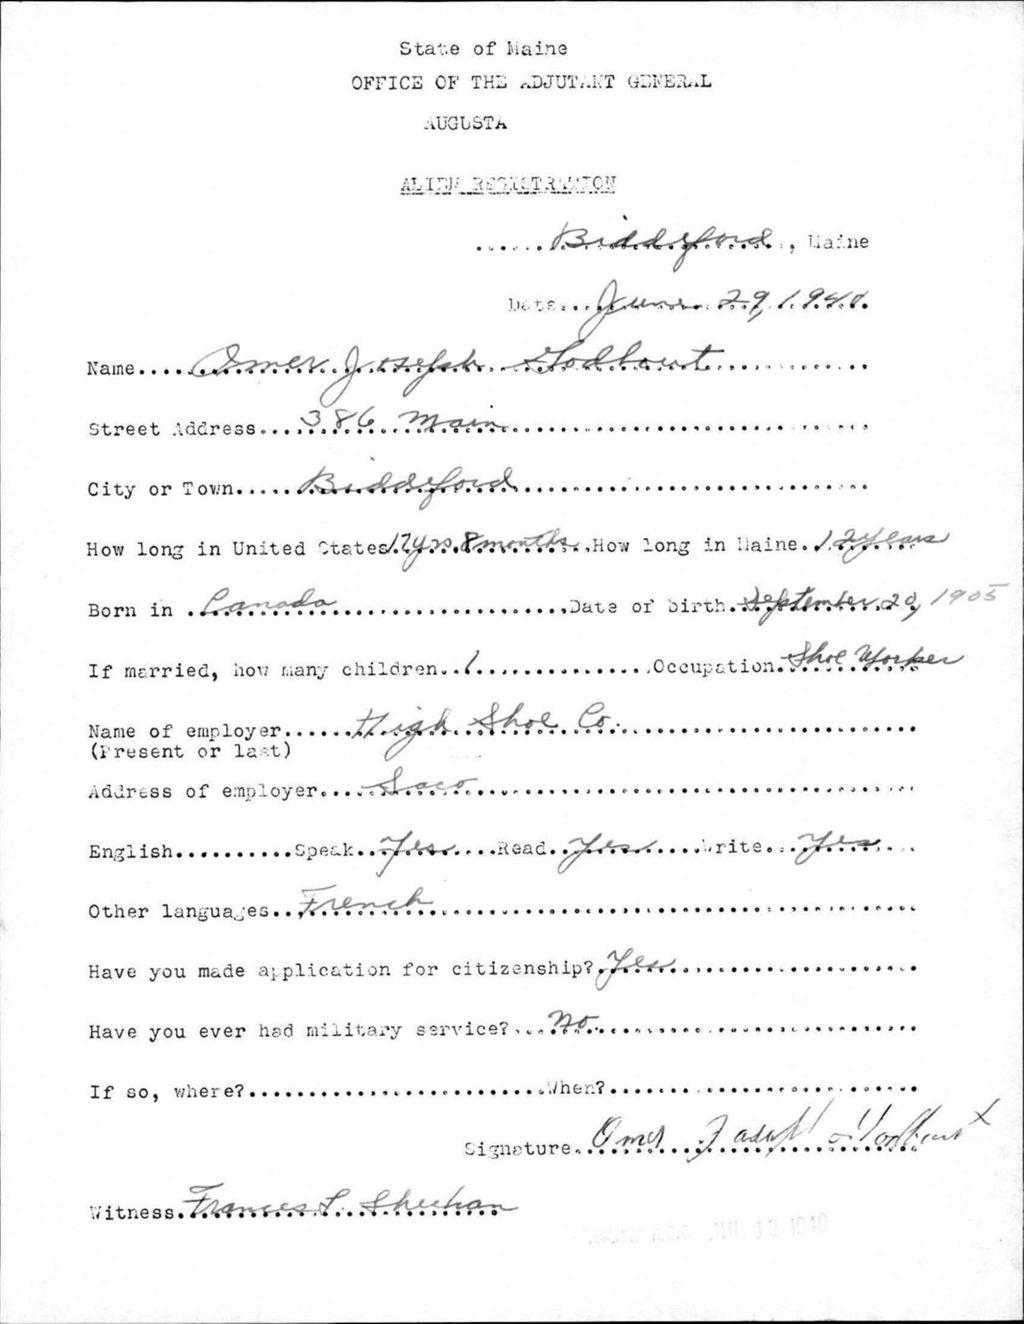 State of Maine
OFFICE OF THE ADJUTANT GENERAL
AUGUSTA
ALIEN REGISTRATION
......Biddeford., Maine
Date...June 29, 1940.
Name....Omer Joseph Godbout...........
Street Address...386 Main........................
City or Town.....Biddeford........................
How long in United States 17 yrs. 8 months..How long in Maine.12 years
Born in .Canada.......................Date of birth.September 20, 1905
If married, how many children..1................Occupation.Shoe Worker
Name of employer......High Shoe Co.....................
(Present or last)
Address of employer.....Saco................................
English..........Speak..Yes....Read..Yes....Write...Yes....
Other languages..French................................
Have you made application for citizenship?.Yes................
Have you ever had military service?...No.......................
If so, where?........................When?........................
Signature.Omer Joseph Godbout x
Witness.Frances L. Sheehan
JUL 12 1940